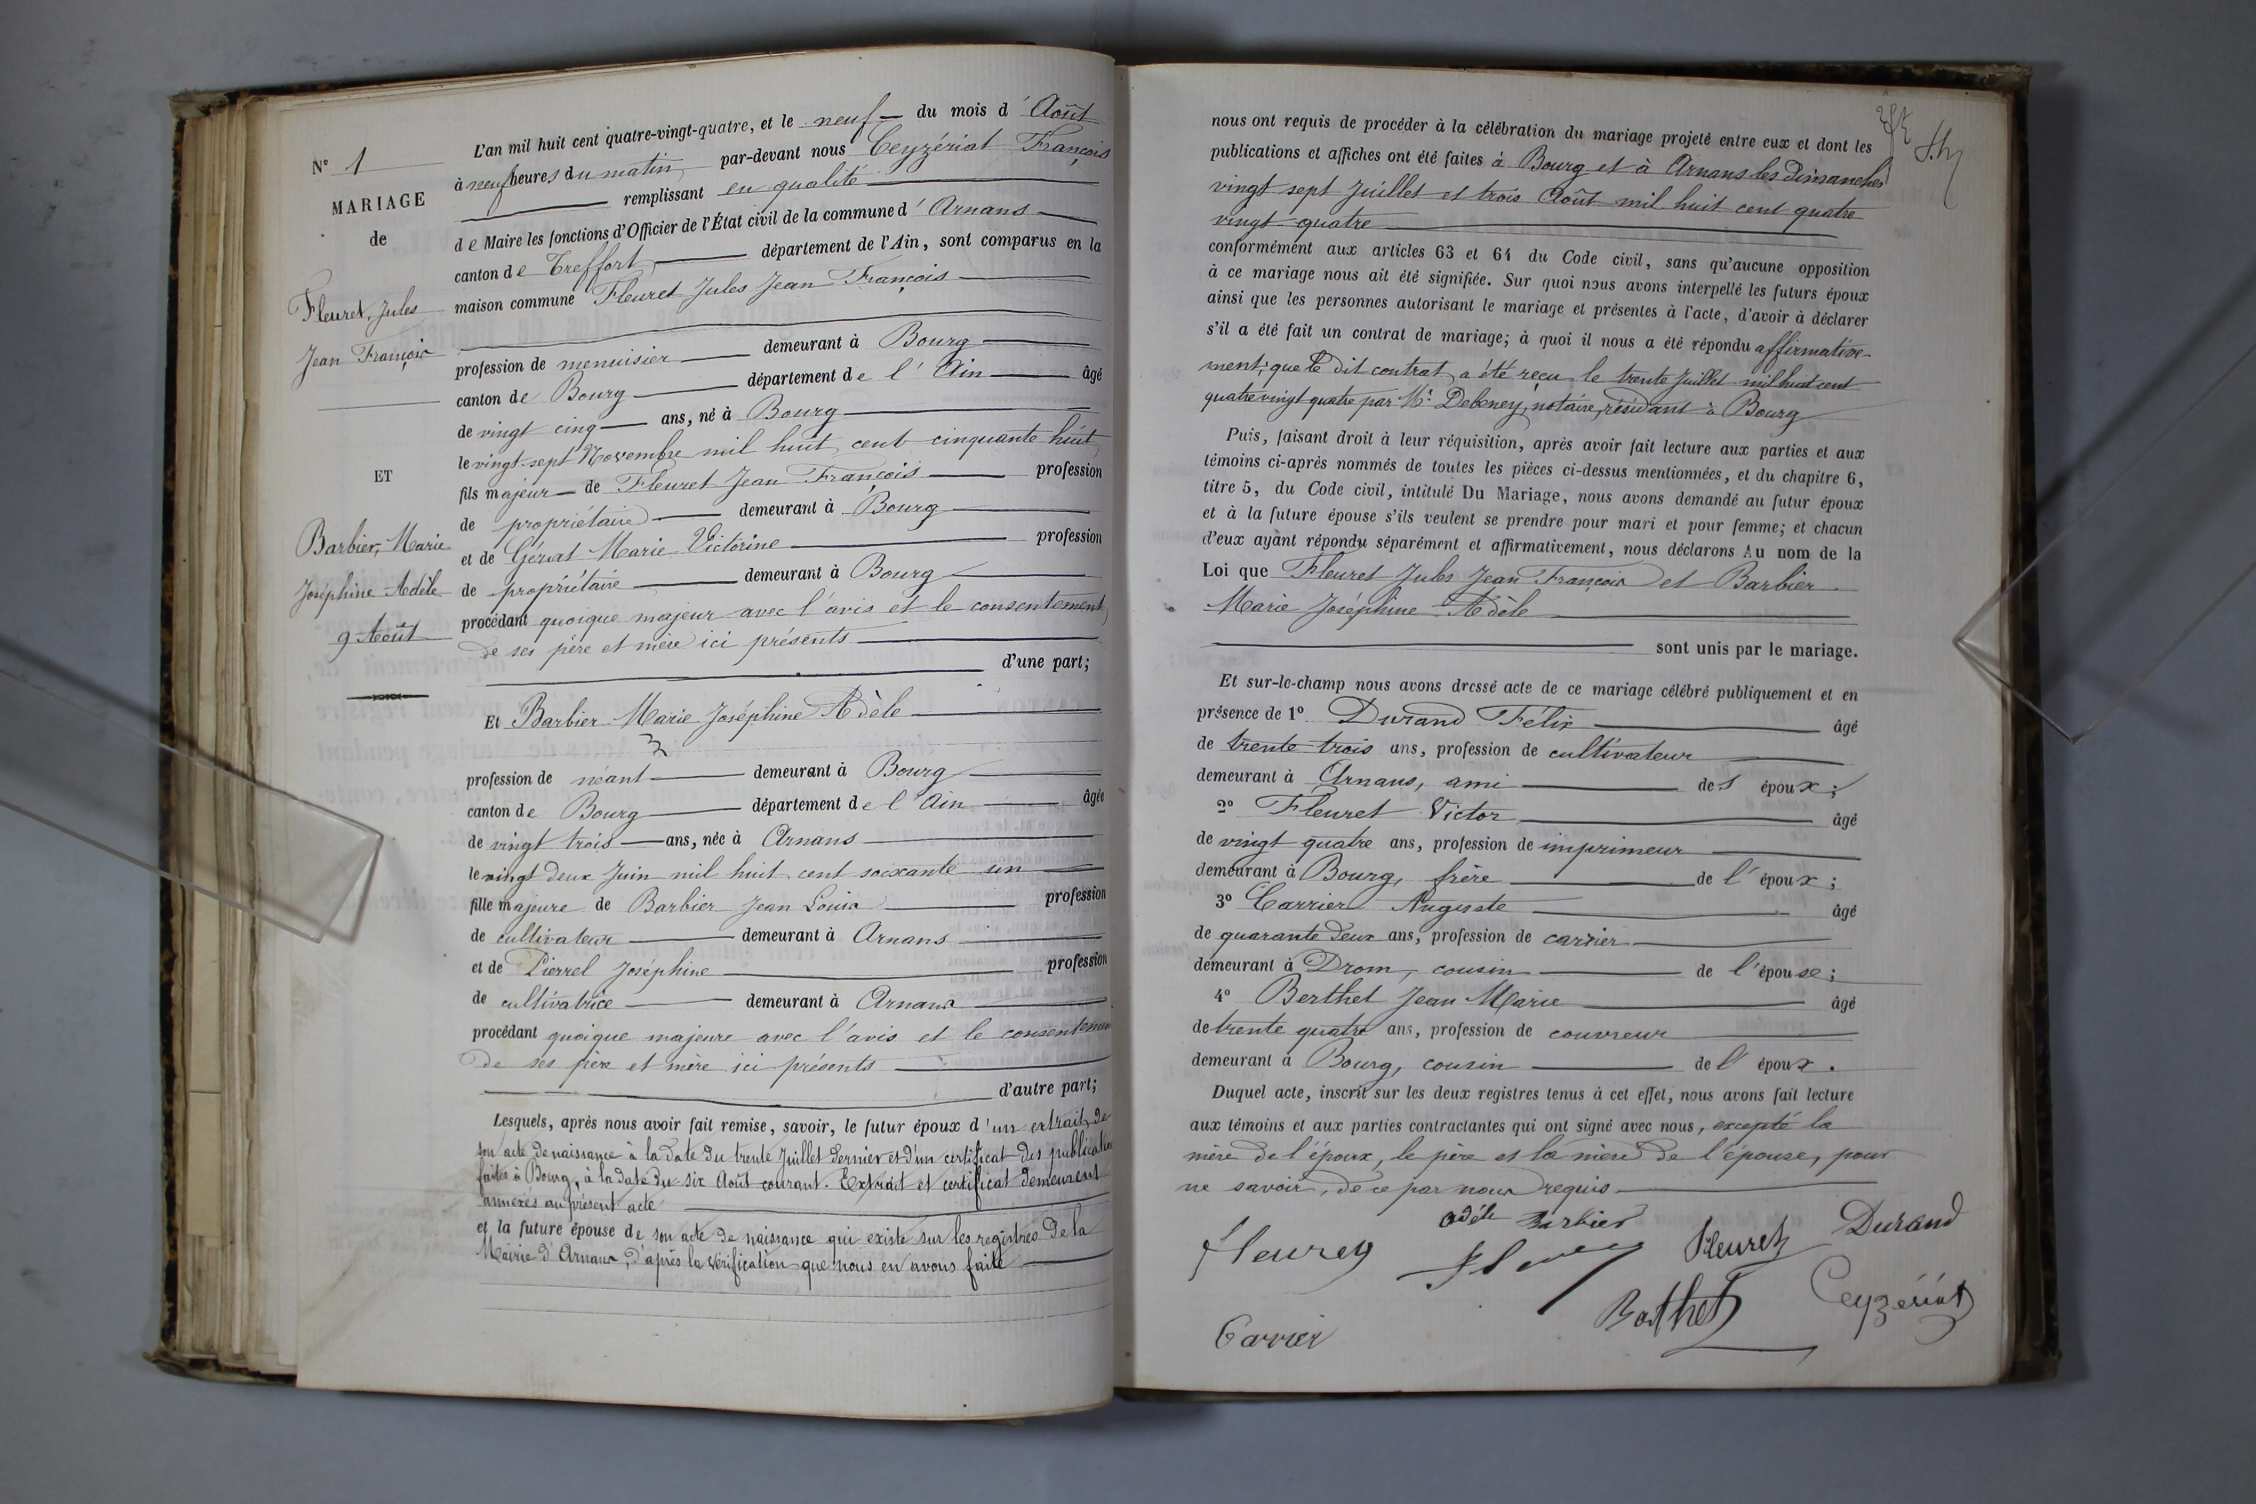 N° 1
MARIAGE
de
Fleuret, Jules
Jean François
ET
Barbier, Marie
Joséphine Adèle
9 Août
L'an mil huit cent quatre-vingt-quatre, et le neuf du mois d'Août
à neuf heures du matin, par-devant nous Ceyzériat François
remplissant en qualité
de Maire les fonctions d'Officier de l'État civil de la commune d'Arnans
canton de Treffort, département de l'Ain, sont comparus en la
maison commune Fleuret Jules Jean François
profession de menuisier demeurant à Bourg
canton de Bourg département de l'Ain âgé
de vingt cinq ans, né à Bourg
le vingt-sept Novembre mil huit cent cinquante huit
fils majeur de Fleuret Jean François profession
de propriétaire demeurant à Bourg
et de Marie Victorine profession
de propriétaire demeurant à Bourg
procédant quoique majeur avec l'avis et le consentement
de ses père et mère ici présents
d'une part;
Et Barbier Marie Joséphine Adèle
profession de néant demeurant à Bourg
canton de Bourg département de l'Ain âgée
de vingt trois ans, née à Arnans
le vingt deux Juin mil huit cent soixante un
fille majeure de Barbier Jean Louis profession
de cultivateur demeurant à Arnans
et de Pierrel Joséphine profession
de cultivatrice demeurant à Arnans
procédant quoique majeure avec l'avis et le consentement
de ses père et mère ici présents
d'autre part;
Lesquels, après nous avoir fait remise, savoir, le futur époux d'un extrait de
son acte de naissance à la date du trente Juillet dernier et d'un certificat des publications
faites à Bourg, à la date du six Août courant. Extrait et certificat demeurent
annexés au présent acte
et la future épouse de son acte de naissance qui existe sur les registres de la
Mairie d'Arnans, d'après la vérification que nous en avons faite
nous ont requis de procéder à la célébration du mariage projeté entre eux et dont les
publications et affiches ont été faites à Bourg et à Arnans les dimanches
vingt sept Juillet et trois Août mil huit cent quatre
vingt quatre
conformément aux articles 63 et 64 du Code civil, sans qu'aucune opposition
à ce mariage nous ait été signifiée. Sur quoi nous avons interpellé les futurs époux
ainsi que les personnes autorisant le mariage et présentes à l'acte, d'avoir à déclarer
s'il a été fait un contrat de mariage; à quoi il nous a été répondu affirmative-
ment; que le dit contrat a été reçu le trente Juillet mil huit cent
quatre vingt quatre par Mr. Debeney, notaire, résidant à Bourg
Puis, faisant droit à leur réquisition, après avoir fait lecture aux parties et aux
témoins ci-après nommés de toutes les pièces ci-dessus mentionnées, et du chapitre 6,
titre 5, du Code civil, intitulé Du Mariage, nous avons demandé au futur époux
et à la future épouse s'ils veulent se prendre pour mari et pour femme; et chacun
d'eux ayant répondu séparément et affirmativement, nous déclarons Au nom de la
Loi que Fleuret Jules Jean François et Barbier
Marie Joséphine Adèle
sont unis par le mariage.
Et sur-le-champ nous avons dressé acte de ce mariage célébré publiquement et en
présence de 1° Durand Félix âgé
de trente trois ans, profession de cultivateur
demeurant à Arnans, ami des époux;
2° Fleuret Victor âgé
de vingt quatre ans, profession de imprimeur
demeurant à Bourg, frère de l'époux;
3° Carrier Auguste âgé
de quarante deux ans, profession de carrier
demeurant à Drom, cousin de l'épouse;
4° Berthet Jean Marie âgé
de trente quatre ans, profession de couvreur
demeurant à Bourg, cousin de l'époux.
Duquel acte, inscrit sur les deux registres tenus à cet effet, nous avons fait lecture
aux témoins et aux parties contractantes qui ont signé avec nous, excepté la
mère de l'époux, le père et la mère de l'épouse, pour
ne savoir, de ce par nous requis
Adèle Barbier
Fleuret Fleuret Durand
Berthet Ceyzériat
Carrier